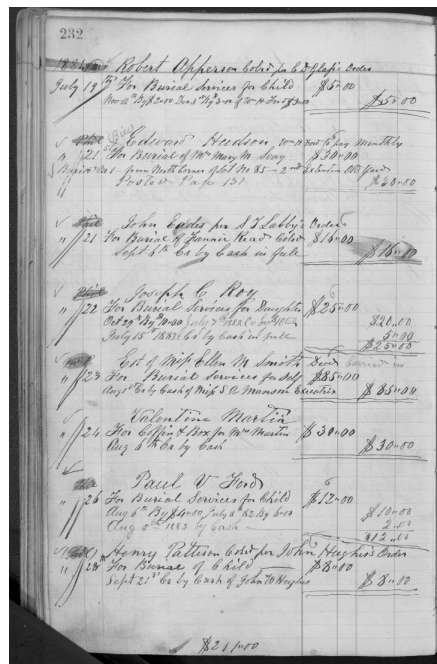 232
Robert Apperson Cold per C D Glass Order
July 19 For Burial Services for Child $5.00
$5.00
Edward Hudson to pay Monthly
" 21 For Burial of Mrs Mary M. Seay $30.00
from North Corner of Lot No 85 - 2nd Extention Old Yard
$30.00
Posted Page 131
John Eades per S T Labby's Order
" 21 For Burial of Fannie Read Cold $16.00
Sept 6th Cr by Cash in full $16.00
Joseph C Roy
" 22 For Burial Services for Daughter $25.00
Oct 29th By 10.00 July 7th 1882 $20.00
July 15th 1882 Cr by Cash in full 5.00
$25.00
Est of Miss Ellen M. Smith Decd
" 23 For Burial Services for Self $85.00
Augt Cr by Cash of Miss S A Munson Executrix $85.00
Valentine Martin
" 24 For Coffin & Box for Wm Martin $30.00
Aug 6th Cr by Cash $30.00
Paul V Ford
" 26 For Burial Services for Child $12.00
Aug 6th By $4.00 July 8th 82 By 6.00 $10.00
1882 by Cash 2.00
$12.00
Henry Patterson Cold per John Hughes Order
" 28 For Burial of Child $8.00
Sept 21st Cr by Cash of John W Hughes $8.00
$211.00